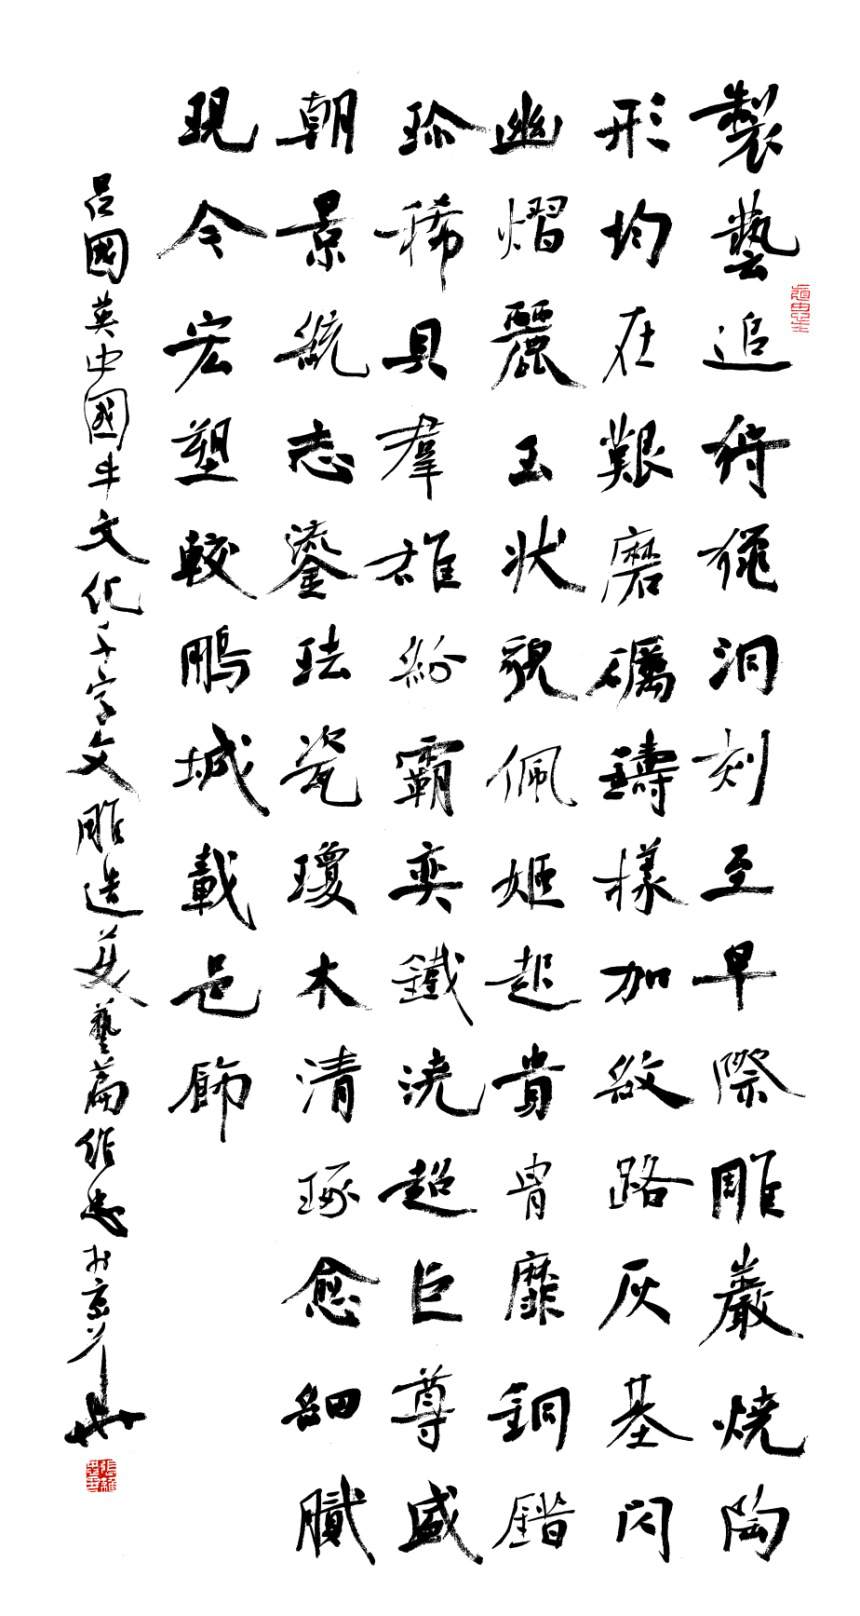 製藝追狩獵洞刻至早際雕巖燒陶
形均在艱磨礪鑄樣加級路灰基閃
幽熠麗玉狀貌佩姬起貴胄靡銅鍇
珍稀具羣雄紛霸奕鐵澆超巨尊盛
朝景統志鎏珐瓷瓊木清琢愈細膩
現今宏塑較鵬城載邑飾
呂國英中國牛文化千字文雕造美藝篇作忠於京華